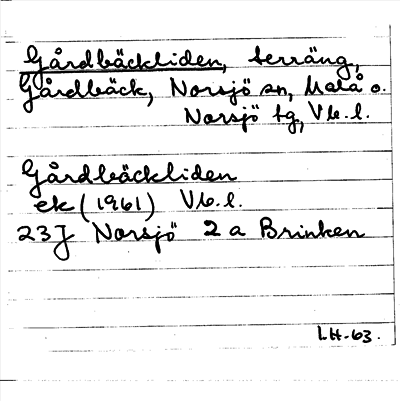 Gårdbäckliden, terräng,
Gårdbäck, Norsjö sn, Malå o.
Norsjö tg, Vb.l.
Gårdbäckliden
ek (1961) Vb.l.
23J Norsjö 2a Brinken
LH-63.